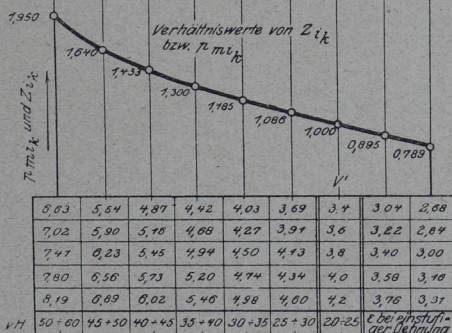 1,950
Verhältniswerte von Z ik
bzw. p mik
1,640
1,433
1,300
1,185
1,086
1,000
0,895
0,789
p mik und Z ik
V'
6,63 5,54 4,87 4,42 4,03 3,69 3,4 3,04 2,68
7,02 5,90 5,16 4,68 4,27 3,91 3,6 3,22 2,84
7,41 6,23 5,45 4,94 4,50 4,13 3,8 3,40 3,00
7,80 6,56 5,73 5,20 4,74 4,34 4,0 3,58 3,16
8,19 6,89 6,02 5,46 4,98 4,60 4,2 3,76 3,31
vH 50÷60 45÷50 40÷45 35÷40 30÷35 25÷30 20÷25 ε bei einstufi-
ger Dehnung